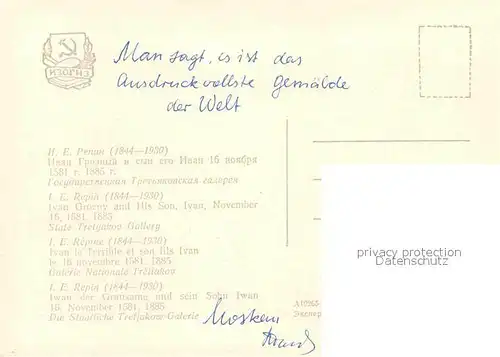 Man sagt, es ist das
Ausdruckvollste Gemälde
der Welt
И. Е. Репин (1844—1930)
Иван Грозный и сын его Иван 16 ноября
1581 г. 1885 г.
Государственная Третьяковская галерея
I. E. Repin (1844—1930)
Ivan Grozny and His Son, Ivan, November
16, 1581. 1885
State Tretjakov Gallery
I. E. Répine (1844—1930)
Ivan le Terrible et son fils Ivan
le 16 novembre 1581. 1885
Galerie Nationale Trétiakov
I. E. Repin (1844—1930)
Iwan der Grausame und sein Sohn Iwan
16. November 1581. 1885
Die Staatliche Tretjakow-Galerie
privacy protection
Datenschutz
Moskau